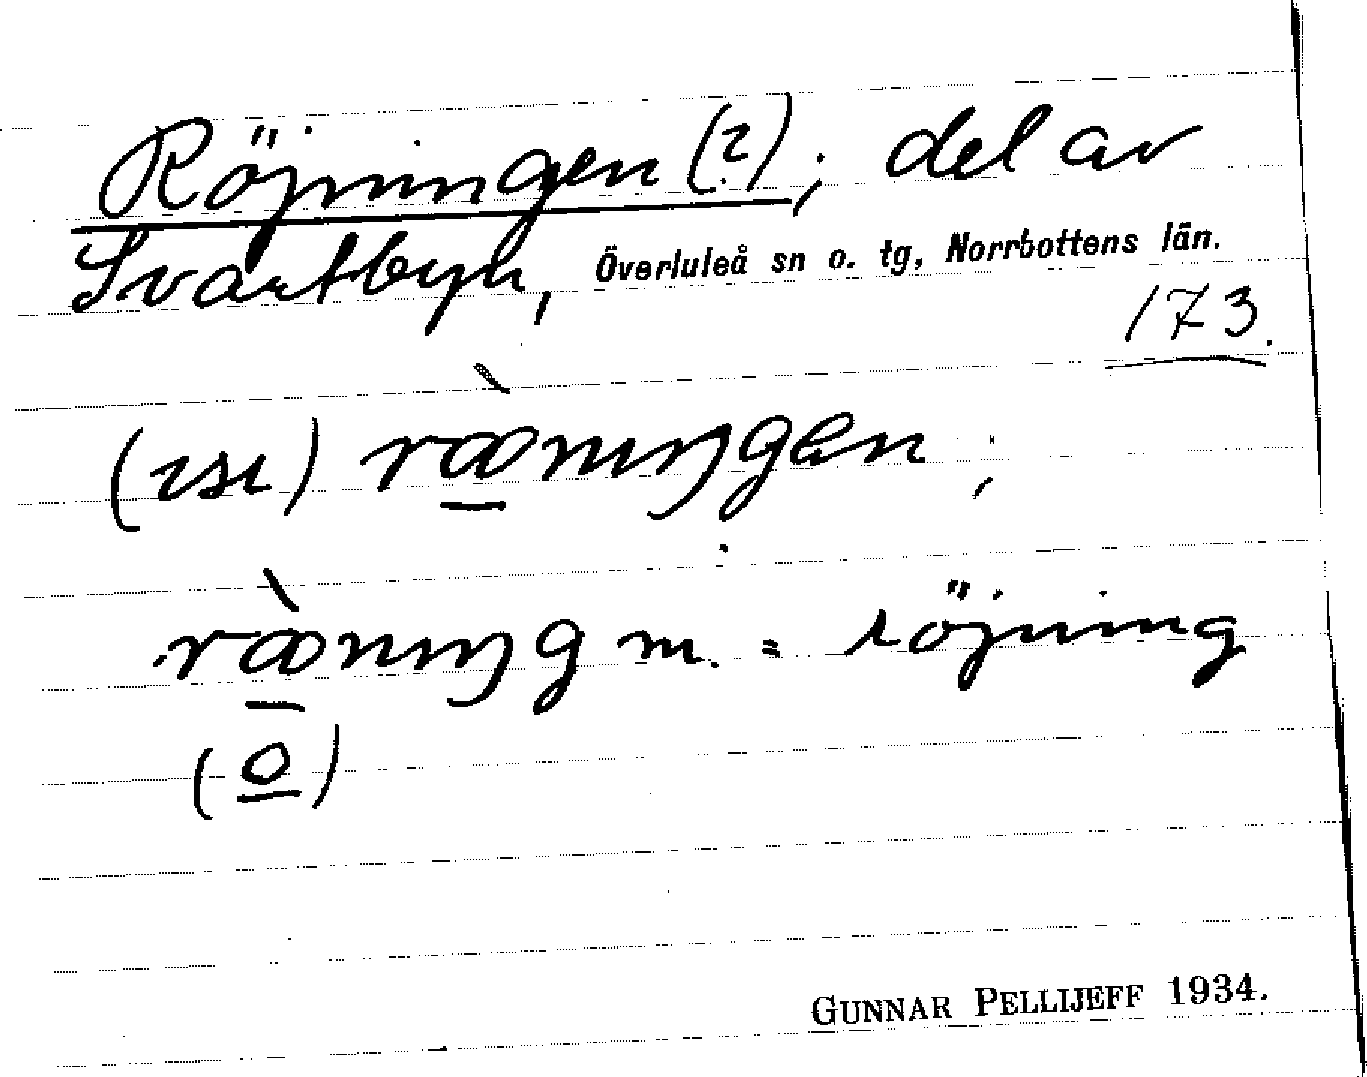 Röjningen (?); del av
Svartbyn, Överluleå sn o. tg, Norrbottens län.
173.
(usɩ) ræ̀niŋgen;
ræ̀niŋg m. = röjning
(o)
GUNNAR PELLIJEFF 1934.